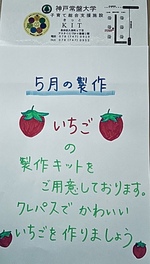 神戸常盤大学
子育て総合支援施設
KIT
5月の製作
いちご
の
製作キットを
ご用意しております。
クレパスで かわいい
いちごを作りましょう